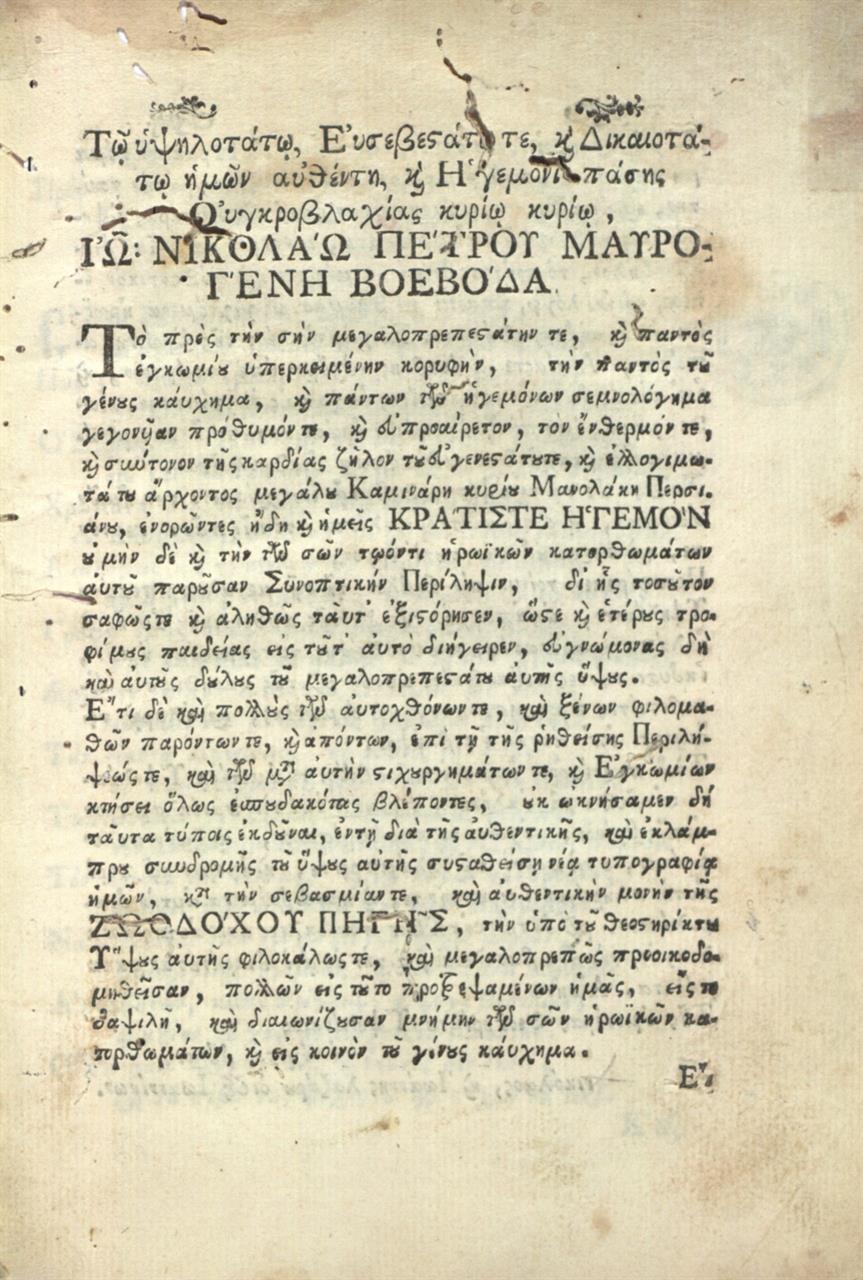 Τῷ ὑψηλοτάτῳ, Εὐσεβεστάτῳ τε, καὶ Δικαιοτά-
τῳ ἡμῶν αὐθέντῃ, καὶ Ἡγεμόνι πάσης
Οὐγκροβλαχίας κυρίῳ κυρίῳ,
ΙΩ͂: ΝΙΚΟΛΑΏ ΠΈΤΡΟΥ ΜΑΥΡΟ-
ΓΈΝΗ ΒΟΕΒΌΔΑ.
Τὸ πρὸς τὴν σὴν μεγαλοπρεπεστάτην τε, καὶ παντὸς
ἐγκωμίου ὑπερκειμένην κορυφὴν, τὴν παντὸς τοῦ
γένους καύχημα, καὶ πάντων τῶν ἡγεμόνων σεμνολόγημα
γεγονυῖαν πρόθυμόν τε, καὶ εὐπροαίρετον, τὸν ἔνθερμόν τε,
καὶ σύντονον τῆς καρδίας ζῆλον τοῦ εὐγενεστάτου τε, καὶ ἐλλογιμω-
τάτου ἄρχοντος μεγάλου Καμινάρη κυρίου Μανολάκη Περσι-
άνου, ἐνορῶντες ἤδη καὶ ἡμεῖς ΚΡΑΤΙΣΤΕ ἩΓΕΜΟῚΝ
οὐ μὴν δὲ καὶ τὴν τῶν σῶν τῳόντι ἡρωϊκῶν κατορθωμάτων
αὐτοῦ παροῦσαν Συνοπτικὴν Περίληψιν, δἰ ἧς τοσοῦτον
σαφῶς τε καὶ ἀληθῶς ταῦτ' ἐξιστόρησεν, ὥστε καὶ ἑτέρους τρο-
φίμους παιδείας εἰς τοῦτ' αὐτὸ διήγειρεν, εὐγνώμονας δὴ
καὶ αὐτοὺς δούλους τοῦ μεγαλοπρεπεστάτου αὐτῆς ὕψους.
Ἔτι δὲ καὶ πολλοὺς τῶν αὐτοχθόνων τε, καὶ ξένων φιλομα-
θῶν παρόντων τε, καὶ ἀπόντων, ἐπὶ τῇ τῆς ῥηθείσης Περιλή-
ψεώς τε, καὶ τῶν μετ' αὐτὴν στιχουργημάτων τε, καὶ Ἐγκωμίων
κτήσει ὅλως ἐσπουδακότας βλέποντες, οὐκ ὠκνήσαμεν δὴ
ταῦτα τύποις ἐκδοῦναι, ἐν τῇ διὰ τῆς αὐθεντικῆς, καὶ ἐκλάμ-
πρου συνδρομῆς τοῦ ὕψους αὐτῆς συσταθείσῃ νέᾳ τυπογραφίᾳ
ἡμῶν, κατὰ τὴν σεβασμίαν τε, καὶ αὐθεντικὴν μονὴν τῆς
ΖΩΟΔΌΧΟΥ ΠΗΓῆΣ, τὴν ὑπὸ τοῦ θεοστηρίκτου
Ὕψους αὐτῆς φιλοκάλως τε, καὶ μεγαλοπρεπῶς προσικοδο-
μηθεῖσαν, πολλῶν εἰς τοῦτο προτρεψαμένων ἡμᾶς, εἴς τε
δαψιλῆ, καὶ διαιωνίζουσαν μνήμην τῶν σῶν ἡρωϊκῶν κα-
τορθωμάτων, καὶ εἰς κοινὸν τοῦ γένους καύχημα.